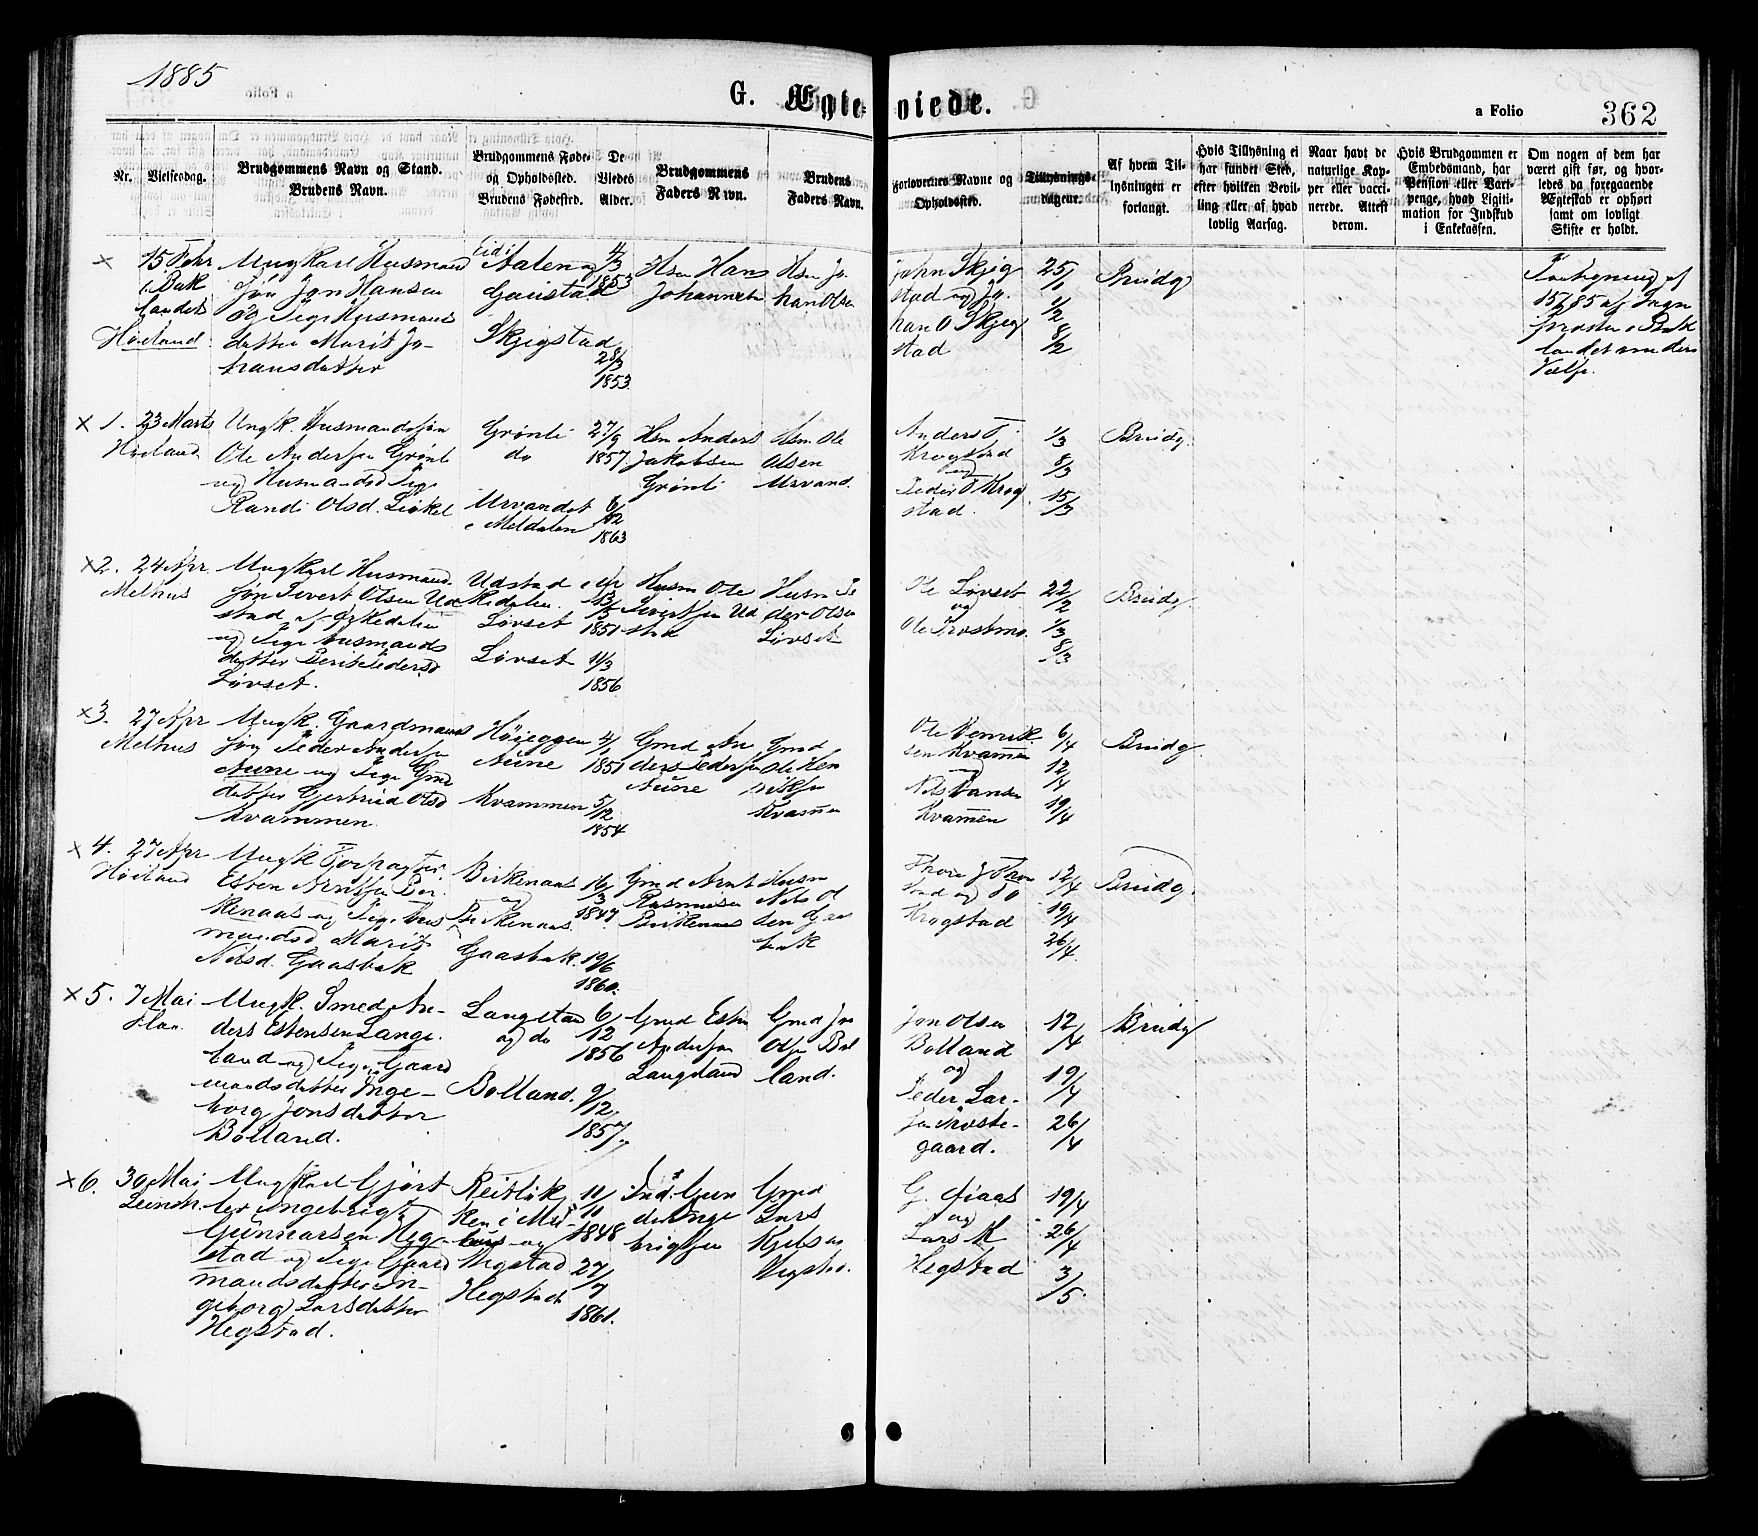 1885
G. Ægte-
viede.
a Folio
362
Nr.
Vielsesdag.
Brudgommens Navn og Stand.
Brudens Navn.
Brudgommens Føde-
og Opholdssted.
Brudens Fødested.
De
Viedes
Alder.
Brudgommens
Faders Navn.
Brudens
Faders Navn.
Forlovernes Navne og
Opholdssted.
Tillysnings-
dagene.
Af hvem Til-
lysningen er
forlangt.
Hvis Tillysning ei
har fundet Sted,
efter hvilken Bevil-
ling eller af hvad
lovlig Aarsag.
Naar havt de
naturlige Kop-
per eller vacci-
nerede. Attest
derom.
Hvis Brudgommen er
Embedsmand, har
Pension eller Vart-
penge, hvad Ligiti-
mation for Indskud
i Enkekassen.
Om nogen af dem har
været gift før, og hvor-
ledes da foregaaende
Ægteskab er ophørt
samt om lovligt
Skifte er holdt.
×
15 Febr
i Bak
landet
Høiland
Ungkarl Husmands
søn Jon Hansen
og Pige Husmands
datter Marit Jo-
hansdatter
Eid i
Aalen og
Gaustad
Skjegstad
4/3
1853
28/3
1853
Hsm Hans
Johannesen
Hsm Jo
han Olsen
John Skjeg
stad og Jo
han O Skjeg
stad
25/1
1/2
8/2
Brudg
af
Bak
landet
× 1.
23 Marts
Høiland
Ungk. Husmandssøn
Ole Andersen Grønli
og Husmandsd Pige
Randi Olsd.
Grønli
do
Urvandet
i Meldalen
27/9
1857
6/12
1863
Hsm Anders
Jakobsen
Grønli
Hsm Ole
Olsen
Urvand.
Anders T
Krogstad
og
Peder T Krog
stad.
1/3
8/3
15/3
Brudg.
×2.
24 Apr
Melhus
Ungkarl Husmand
søn Sivert Olsen Ud
stad af Orkedalen
og Pige Husmands
datter Berit Pedersd
Løvset.
Udstad i Or
kedalen
Løvset
Løvset
1851
11/3
1856
Husm Ole
Sivertsen Ud
stad
Husm Pe
der Olsen
Løvset
Ole Løvset
og
Ole Trostmo
22/2
1/3
8/3
Brudg.
×3.
27 Apr
Melhus
Ungk. Gaardmands
søn Peder Andersen
Aune og Pige Gmd
datter Gjertrud Olsd
Kvammen
Høieggen
Aune
Kvammen
4/1
1851
5/12
1854
Gmd An
ders Pedersen
Aune
Gmd
Ole Hen
riksen
Kvam̄en
Ole Henrik
sen Kvam̄en
og
Nils Hansen
Kvam̄en
6/4
12/4
19/4
Brudg.
× 4.
27 Apr
Høiland
Ungk Forpagter
Esten Arntsen Bir
kenaas og Pige Hus
mandsd Marit
Nilsd. Gaasbak
Birkenaas
og
Birkenaas
Gaasbak.
16/3
1847.
19/6
1860.
Gmd Arnt
Rasmussen
Birkenaas
Husm
Nils Ol
sen Gaas
bak
Krogstad
12/4
19/4
26/4
Brudg.
× 5.
7 Mai
Flaa
Ungk. Smed An-
ders Estensen Lange-
land og Pige Gaard
mandsdatter Inge-
borg Jonsdatter
Bolland.
Langeland
og do
Bolland.
6/12
1856
9/12
1857
Gmd Esten
Andersen
Langeland
Gmd Jon
Olsen Bol
land.
Jon Olsen
Bolland
og
Peder Lar-
sen Øste-
gaard.
12/4
19/4
26/4
Brudg
×6.
30 Mai
Leinstr.
Ungkarl Gjørt
ler Ingebrigt
Gunnarsen Heg
stad og Pige Gaard
mandsdatter In-
geborg Larsdatter
Hegstad.
Reitløk
ken i Mel
hus og
Hegstad
Hegstad
11/10
1848
27/7
1861.
Ind. Gun
der Inge
brigtsen
Gmd
Lars
Kjels
Hegstad
G. Aaas
og
Lars K
Hegstad
19/4
26/4
3/5.